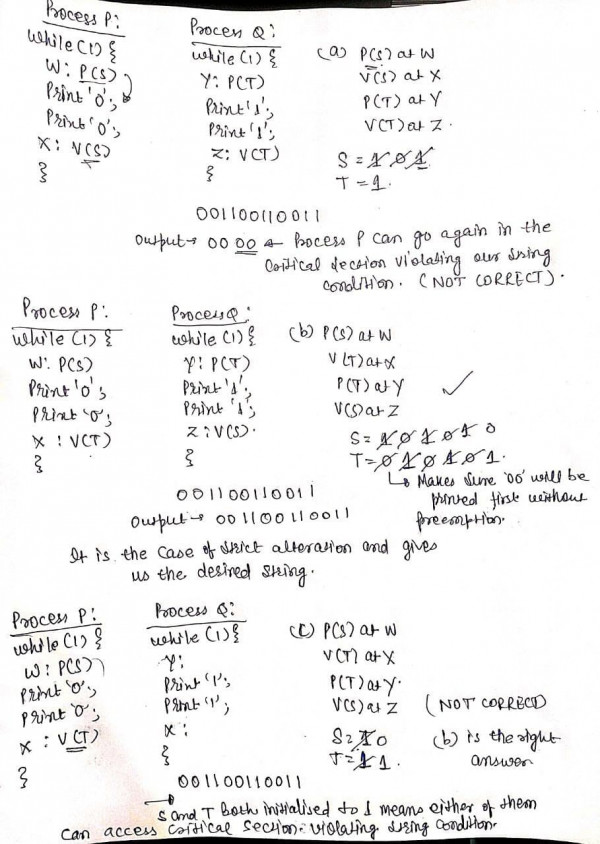 Process P:
while(1) {
W: P(S)
Print '0';
Print '0';
X: V(S)
}
Process Q:
while(1) {
Y: P(T)
Print '1';
Print '1';
Z: V(T)
}
(a) P(S) at W
V(S) at X
P(T) at Y
V(T) at Z.
S = 1 0 1
T = 1.
001100110011
Output → 00 00 ← Process P can go again in the
critical section violating our string
condition. (NOT CORRECT).
Process P:
while(1) {
W: P(S)
Print '0';
Print '0';
X : V(T)
}
Process Q:
while(1) {
Y: P(T)
Print '1';
Print '1';
Z: V(S).
}
(b) P(S) at W
V(T) at X
P(T) at Y ✓
V(S) at Z
S = 1 0 1 0 1 0
T = 0 1 0 1 0 1.
↳ Makes sure '00' will be
printed first without
preemption.
001100110011
Output → 001100110011
It is the case of strict alteration and gives
us the desired string.
Process P:
while(1) {
W: P(S)
Print '0';
Print '0';
X : V(T)
}
Process Q:
while(1) {
Y:
Print '1';
Print '1';
X:
}
(c) P(S) at W
V(T) at X
P(T) at Y.
V(S) at Z
S = 1 0
T = 1 1.
(NOT CORRECT)
(b) is the right
answer
001100110011
→ S and T both initialised to 1 means either of them
can access critical section. violating string condition.